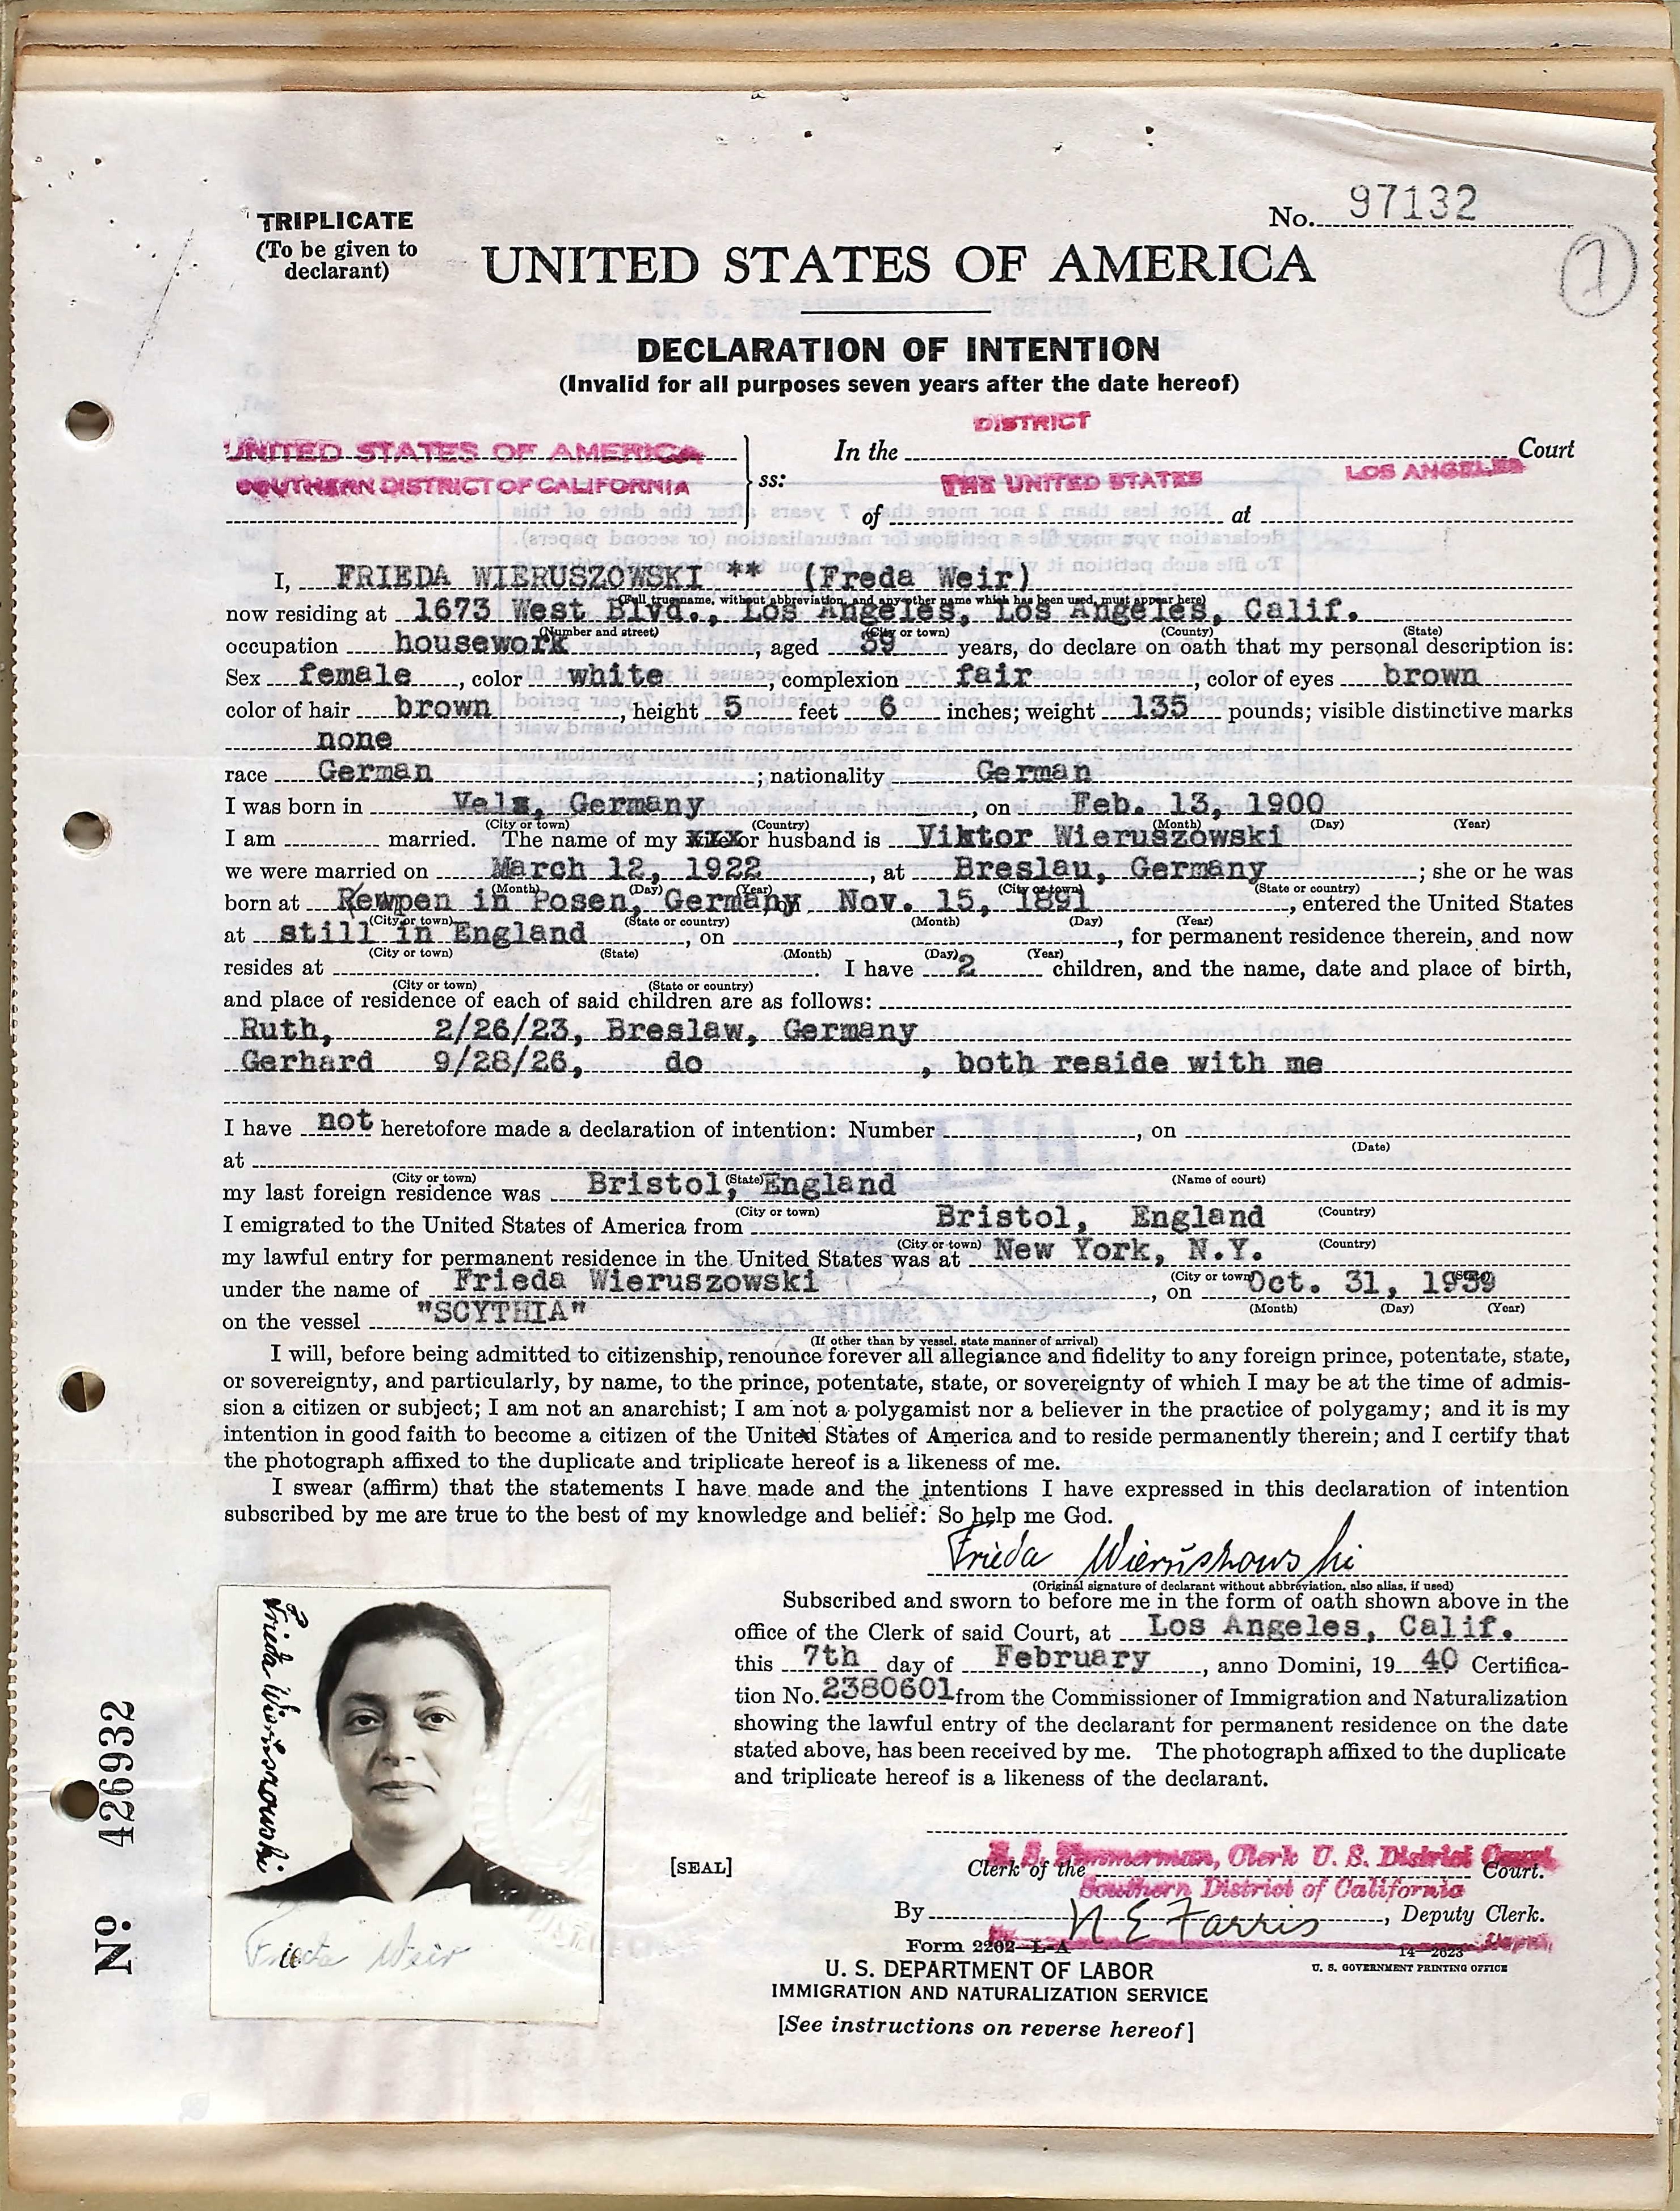 TRIPLICATE
(To be given to
declarant)
No. 97132
UNITED STATES OF AMERICA
DECLARATION OF INTENTION
(Invalid for all purposes seven years after the date hereof)
UNITED STATES OF AMERICA
SOUTHERN DISTRICT OF CALIFORNIA
ss:
DISTRICT
In the Court
THE UNITED STATES LOS ANGELES
of at
I, FRIEDA WIERUSZOWSKI ** (Freda Weir)
(Full true name, without abbreviation, and any other name which has been used, must appear here)
now residing at 1673 West Blvd., Los Angeles, Los Angeles, Calif.
(Number and street) (City or town) (County) (State)
occupation housework, aged 39 years, do declare on oath that my personal description is:
Sex female, color white, complexion fair, color of eyes brown
color of hair brown, height 5 feet 6 inches; weight 135 pounds; visible distinctive marks
none
race German; nationality German
I was born in Germany, on Feb. 13, 1900
(City or town) (Country) (Month) (Day) (Year)
I am married. The name of my or husband is Viktor Wieruszowski
we were married on March 12, 1922, at Breslau, Germany; she or he was
(Month) (Day) (Year) (City or town) (State or country)
born at in Posen, Germany on Nov. 15, 1891, entered the United States
(City or town) (State or country) (Month) (Day) (Year)
at still in England, on , for permanent residence therein, and now
(City or town) (State) (Month) (Day) (Year)
resides at . I have 2 children, and the name, date and place of birth,
(City or town) (State or country)
and place of residence of each of said children are as follows:
Ruth, 2/26/23, Breslaw, Germany
Gerhard 9/28/26, do , both reside with me
I have not heretofore made a declaration of intention: Number , on
(Date)
at
(City or town) (State) (Name of court)
my last foreign residence was Bristol, England
(City or town) (Country)
I emigrated to the United States of America from Bristol, England
(City or town) (Country)
my lawful entry for permanent residence in the United States was at New York, N.Y.
(City or town) (State)
under the name of Frieda Wieruszowski, on Oct. 31, 1939
(Month) (Day) (Year)
on the vessel "SCYTHIA"
(If other than by vessel, state manner of arrival)
I will, before being admitted to citizenship, renounce forever all allegiance and fidelity to any foreign prince, potentate, state,
or sovereignty, and particularly, by name, to the prince, potentate, state, or sovereignty of which I may be at the time of admis-
sion a citizen or subject; I am not an anarchist; I am not a polygamist nor a believer in the practice of polygamy; and it is my
intention in good faith to become a citizen of the United States of America and to reside permanently therein; and I certify that
the photograph affixed to the duplicate and triplicate hereof is a likeness of me.
I swear (affirm) that the statements I have made and the intentions I have expressed in this declaration of intention
subscribed by me are true to the best of my knowledge and belief: So help me God.
Frieda Wieruszowski
(Original signature of declarant without abbreviation, also alias, if used)
Subscribed and sworn to before me in the form of oath shown above in the
office of the Clerk of said Court, at Los Angeles, Calif.
this 7th day of February, anno Domini, 19 40 Certifica-
tion No. 2380601 from the Commissioner of Immigration and Naturalization
showing the lawful entry of the declarant for permanent residence on the date
stated above, has been received by me. The photograph affixed to the duplicate
and triplicate hereof is a likeness of the declarant.
Frieda Wieruszowski
Frieda Weir
No 426932
[SEAL]
R. S. Zimmerman, Clerk U. S. District Court
Clerk of the Court.
Southern District of California
By N E Farris, Deputy Clerk.
Form 2202-L-A
14—2623
U. S. DEPARTMENT OF LABOR
U. S. GOVERNMENT PRINTING OFFICE
IMMIGRATION AND NATURALIZATION SERVICE
[See instructions on reverse hereof]